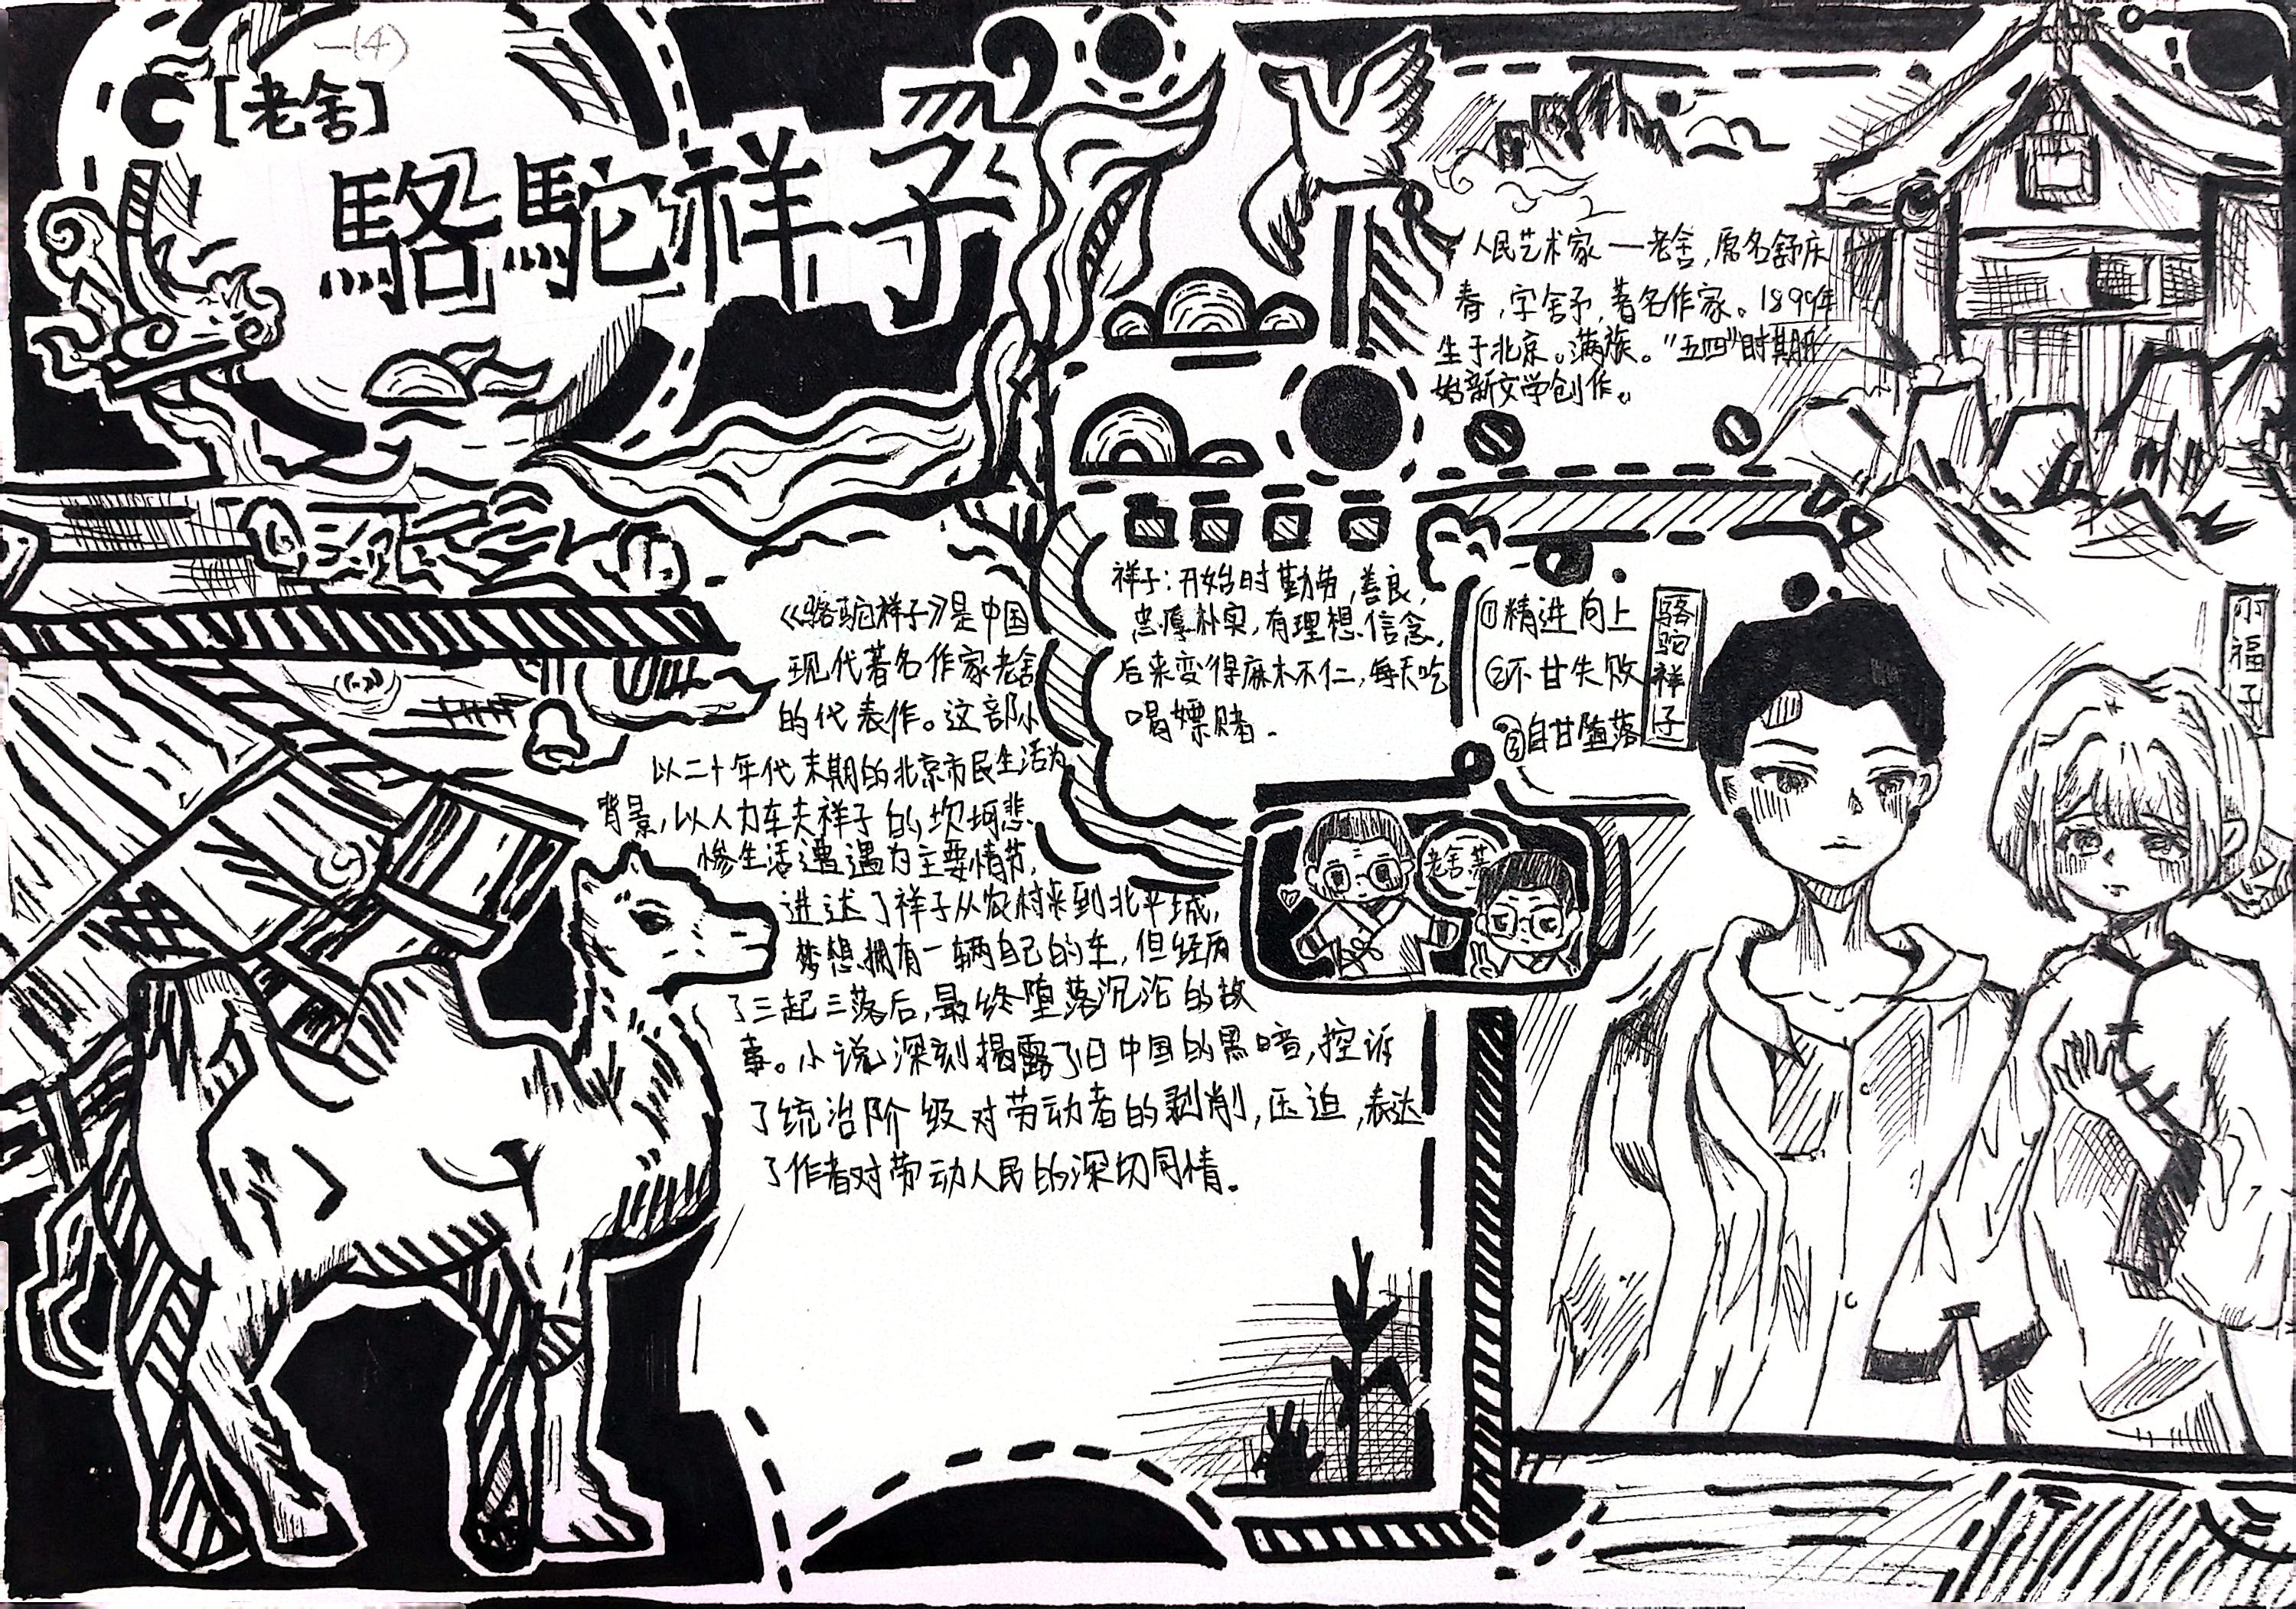 一(4)
[老舍]
駱駝祥子
人民艺术家一老舍,原名舒庆
春,字舍予,著名作家。1899年
生于北京。满族。"五四"时期开
始新文学创作。
《骆驼祥子》是中国
现代著名作家老舍
的代表作。这部小
以二十年代末期的北京市民生活为
背景,以人力车夫祥子的坎坷悲
惨生活遭遇为主要情节,
进述了祥子从农村来到北平城,
梦想拥有一辆自己的车,但经历
了三起三落后,最终堕落沉沦的故
事。小说深刻揭露了旧中国的黑暗,控诉
了统治阶级对劳动者的剥削,压迫,表达
了作者对劳动人民的深切同情。
祥子:开始时勤劳,善良,
忠厚朴实,有理想信念,
后来变得麻木不仁,每天吃
喝嫖赌.
①精进向上
②不甘失败
③自甘堕落
骆驼祥子
小福子
老舍著